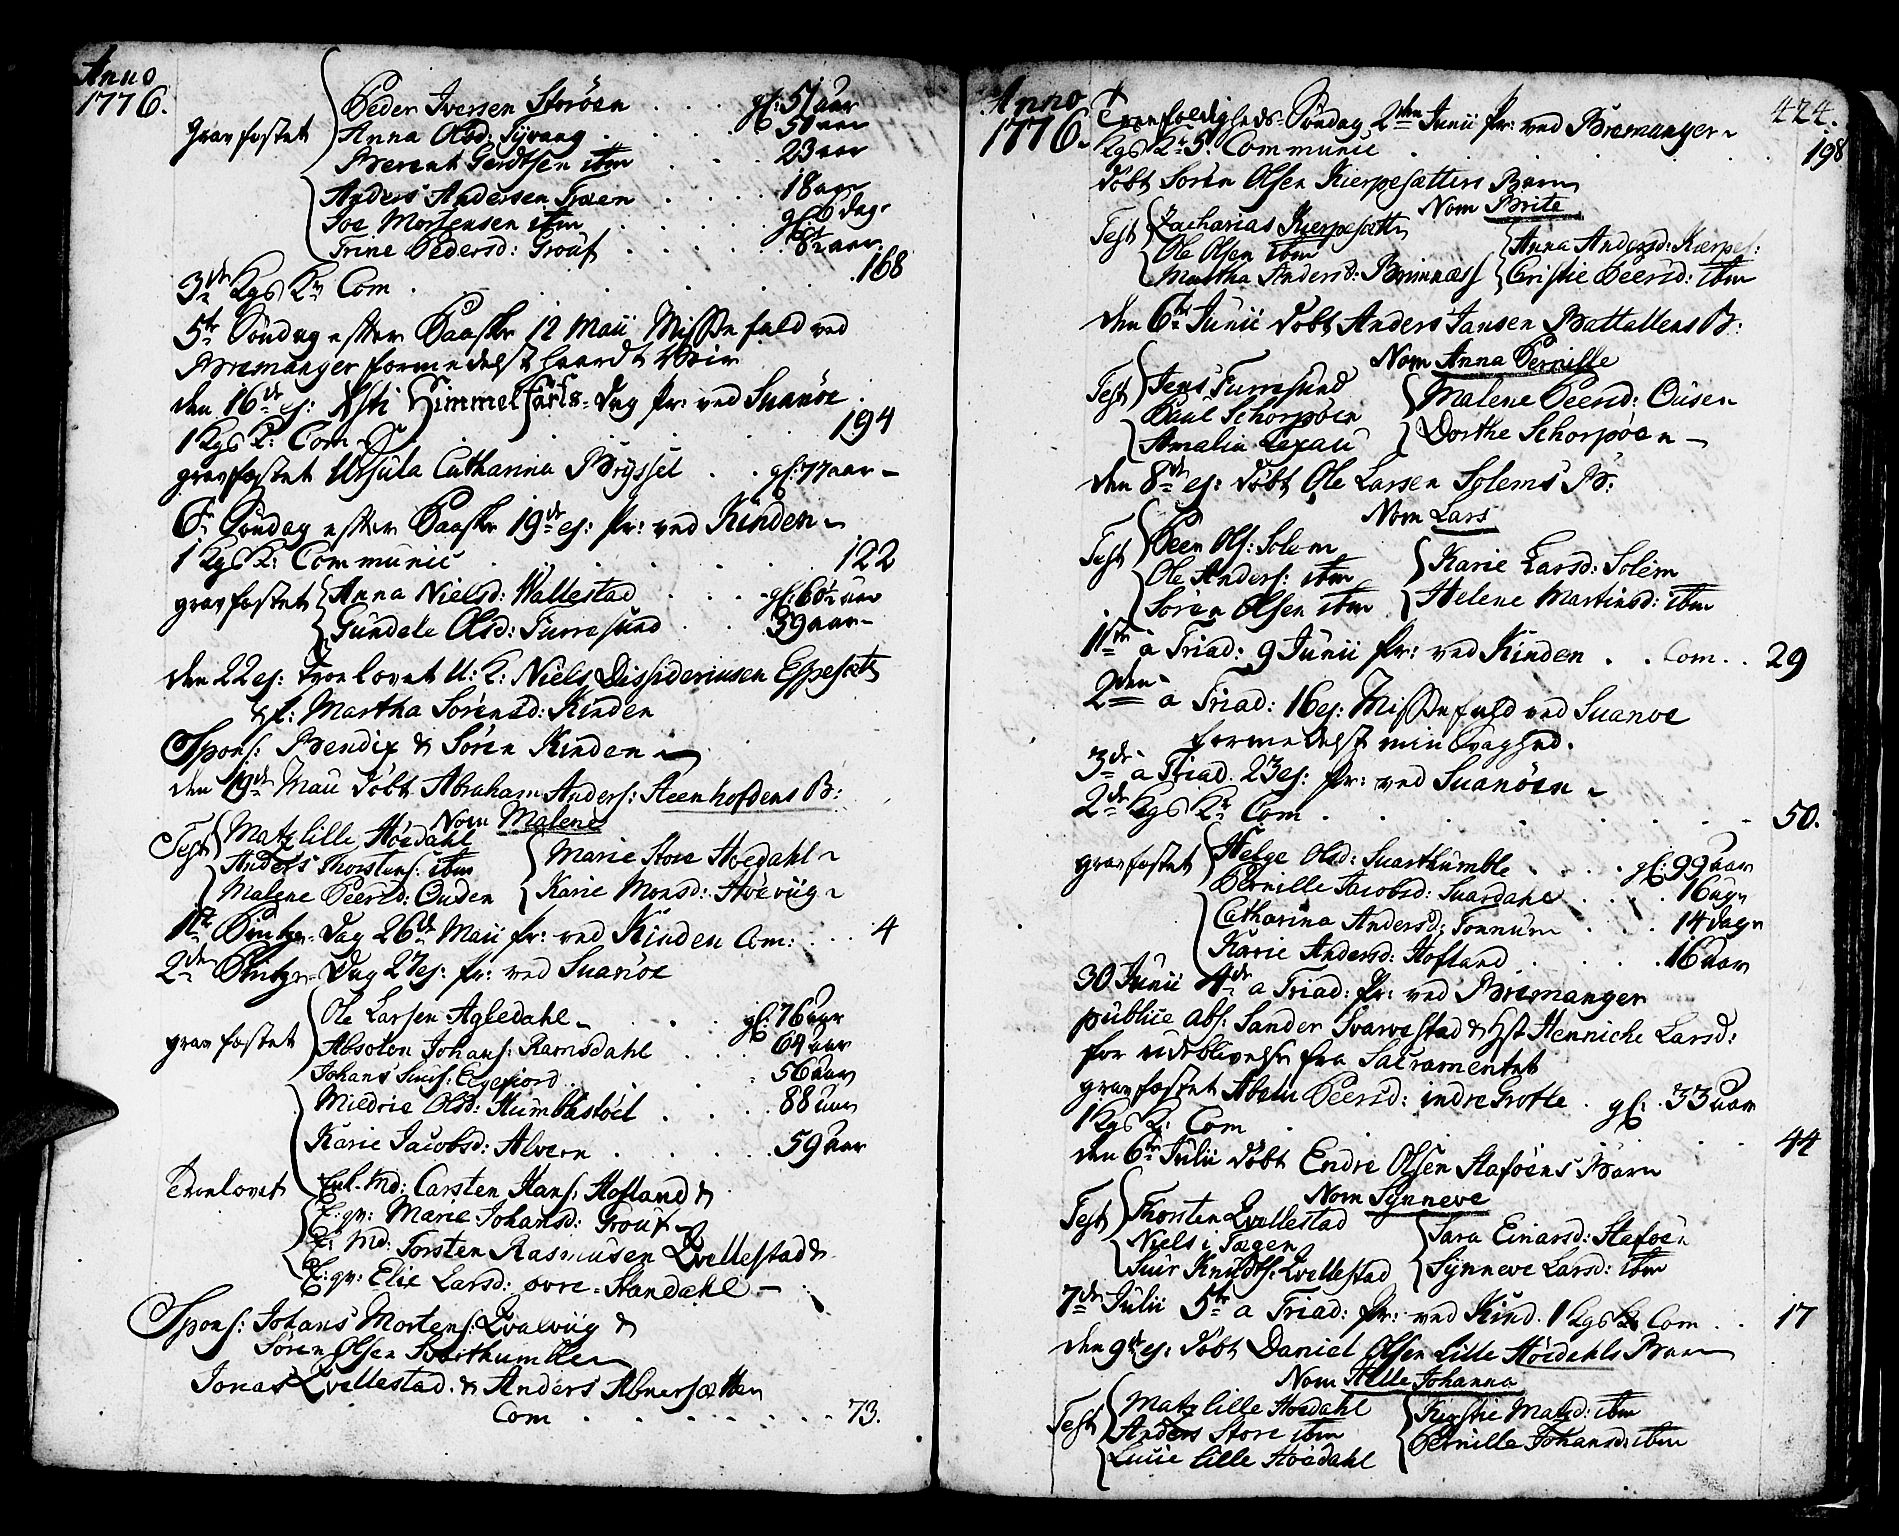 Anno
1776.
gravfæstet
Peder Iversen Storöen . . . . gl: 51 aar
Anna Olsd: Tÿvang . . . . 50 aar
Berent Gerdtsen ibm . . . 23 aar
Anders Andersen Træen . . . . 18 aar
Joe Mortensen ibm . . . . gl: 6 dag.
Trine Pedersd: Grouf . . . . 8½ aar
3de Kgs Kv Com . . . . 168
5te Söndag efter Paaske 12 Maii Missefald ved
Bremanger formedelst haardt Veir
den 16de ej: Xsti Himmelfarts-Dag Pr: ved Suanöe .
1 Kgs K: Com . . . . 194
gravfæstet Ursula Catharina Brÿssel . . gl: 77 aar
6te Söndag efter Paaske 19de ej: Pr: ved Kinden
1 Kgs K: Communic . . . . 122
gravfæstet Anna Nielsd: Wallestad . . . . gl: 60½ aar
Gundele Olsd: Furresund . . 39 aar
den 22 ej: trolovet U: K: Niels Dissideriusen Espeset
& P: Martha Sörensd: Kinden
Spons: Bendix & Sören Kinden
den 19de Maii döbt Abraham Anders: Steenhofdens B:
Nom Malene
Test Matz lille Höedahl
Anders Thorstens: ibm
Malene Peersd: Ousen
Marie Store Höedahl
Karie Monsd: Höeviig
1ste Pintze-Dag 26de Maii Pr: ved Kinden Com: . . . 4
2den Pintze-Dag 27 ej: Pr: ved Suanöe
gravfæstet
Ole Larsen Agledahl . . . gl: 76 aar
Absolon Johans: Ramsdahl . . . 64 aar
Johans Siurs: Ege​fiord . . . 56 aar
Mildrie Olsd: Humblestöel . . . . 88 aar
Karie Jacobsd: Alvern . . . . 59 aar
Trolovet
Enk. Md: Carsten Hans: Hofland &
E: qv: Marie Johansd: Grouf
E: Md: Torsten Rasmusen Qvellestad &
E: qv: Elie Larsd: övre-Standahl
Spons: Johans Mortens: Qvalviig &
Sören Olsen Svarthumble
Jonas Qvellestad & Anders Abnersætter
Com . . . . 73.
Anno
1776.
424.
Trefoldigheds-Söndag 2den Junii Pr: ved Bremanger
Kgs Kv 5. Communic . . . . 198
döbt Sören Olsen Kierpesætters Barn
Nom Brite
Test Zacharias Kierpesætter
Ole Olsen ibm
Martha Andersd: Brimnæss
Anna Andersd: Kierpes:
Cristie Peersd: ibm
den 6te Junii döbt Anders Jansen Battallens B:
Nom Anna Pernille
Test Jens Furresund
Paul Schorpöen
Amalia Lexau
Malene Peersd: Ousen
Dorthe Schorpöen
den 8de ej: döbt Ole Larsen Solems B:
Nom Lars
Test Peer Ols: Solem
Ole Anders: ibm
Sören Olsen ibm
Karie Larsd: Solem
Helene Martinsd: ibm
1ste a Triad: 9 Junii Pr: ved Kinden . . Com. . 29
2den a Triad: 16 ej: Missefald ved Suanöe
formedelst min Svaghed.
3de a Triad. 23 ej: Pr: ved Suanöen
2de Kgs Kv Com . . . . 50.
gravfæstet
Helge Olsd: Suarthumble . . . . gl: 99 aar
Pernille Jacobsd: Suardahl . . . . 16 ug
Catharina Andersd: Tonnum . . . 14 dage
Karie Andersd: Hofland . . . . 16 aar
30 Junii 4de a Triad: Pr: ved Bremanger
publice abs: Sander Svarvestad & Hst Henniche Larsd:
for udeblivelse fra Sacramentet
gravfæstet Abelu Peersd: indre Grotle . gl: 33 aar
1 Kgs K: Com . . . . 44
den 6te Julii döbt Endre Olsen Staföens Barn
Nom Synneve
Test Thorsten Qvellestad
Niels i Tægen
Siur Knudts: Qvellestad
Sara Einarsd: Staföen
Synneve Larsd: ibm
7de Julii 5te a Triad: Pr: ved Kind. 1 Kgs K Com . . 17
den 9de ej: döbt Daniel Olsen Lille Höedahls Barn
Nom Helle Johanna
Test Matz lille Höedahl
Anders Store ibm
Lucie lille Höedahl
Kirstie Matzd: ibm
Pernille Johansd: ibm